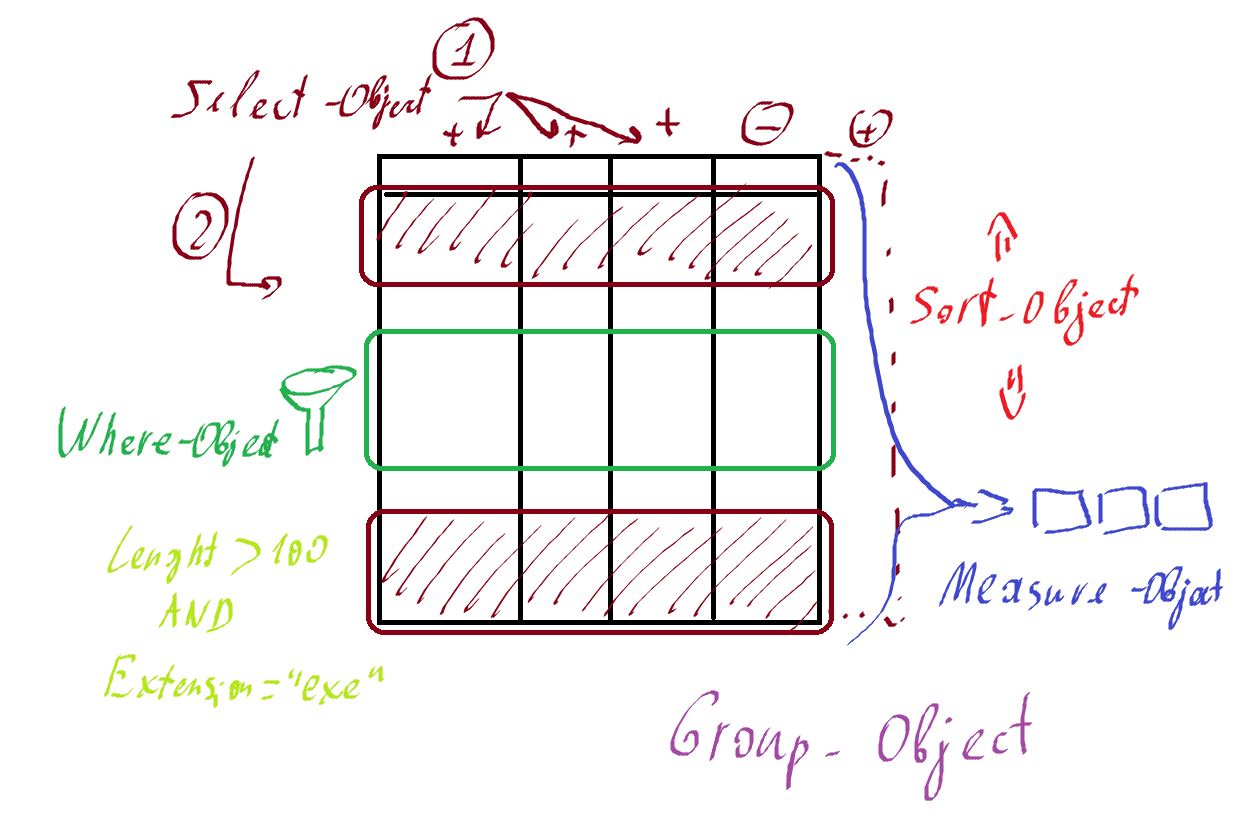 1
Select-Object
+ + + - +
2
Sort-Object
Where-Object
Lenght > 100
AND
Extension="exe"
Measure-Object
Group-Object